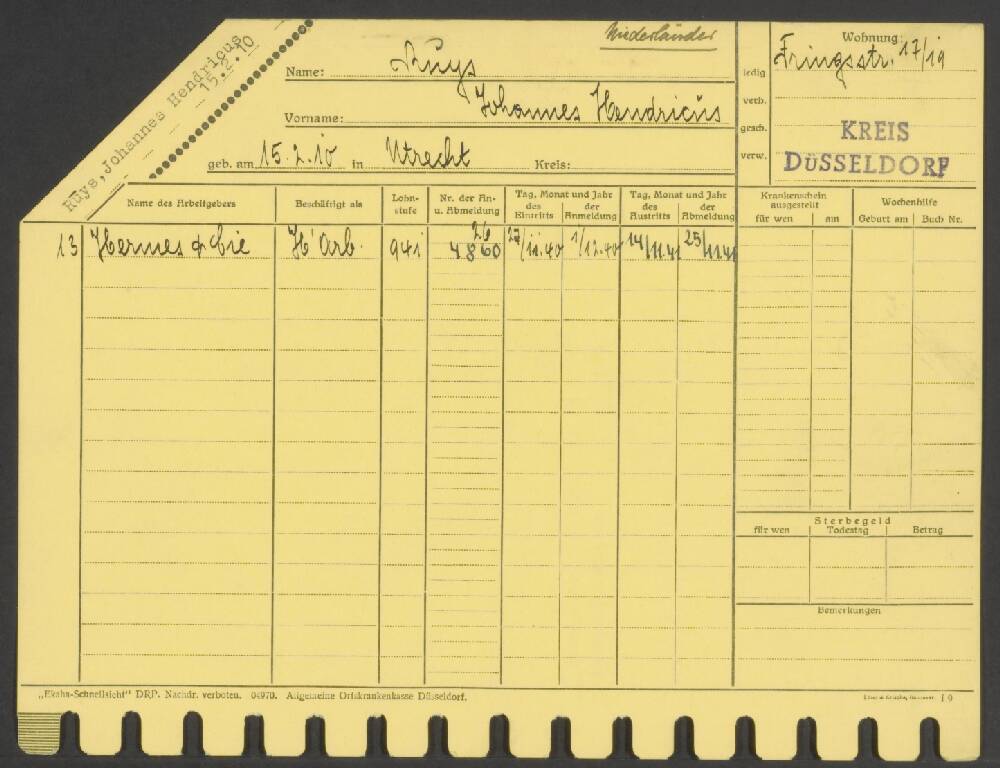 Ruys, Johannes Hendricus
15.2.10
Niederländer
Name: Ruys
Vorname: Johannes Hendricus
geb. am 15.2.10 in Utrecht Kreis:
Wohnung:
Fringsstr. 17/19
ledig
verh.
gesch.
verw.
KREIS
DÜSSELDORF
Name des Arbeitgebers
Beschäftigt als
Lohn-
stufe
Nr. der An-
u. Abmeldung
Tag, Monat und Jahr
des Eintritts
der Anmeldung
Tag, Monat und Jahr
des Austritts
der Abmeldung
Krankenschein
ausgestellt
für wen
am
Wochenhilfe
Geburt am
Buch Nr.
13 Hermes & Cie H'Arb. 941 26 4860 27/11.40 1/12.40 14/11.41 25/11.41
Sterbegeld
für wen
Todestag
Betrag
Bemerkungen
„Ekaha-Schnellsicht" DRP. Nachdr. verboten. 04970. Allgemeine Ortskrankenkasse Düsseldorf.